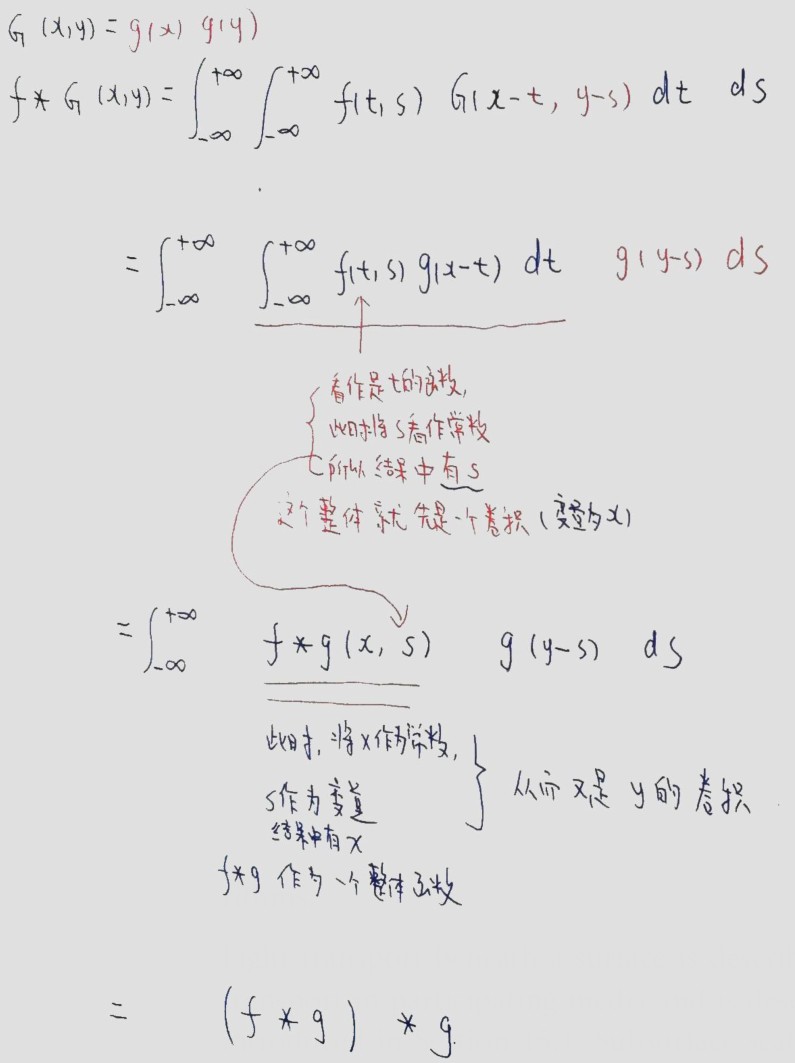 G (x,y) = g(x) g(y)
f * G (x,y) = ∫_{-∞}^{+∞} ∫_{-∞}^{+∞} f(t,s) G(x-t, y-s) dt ds
= ∫_{-∞}^{+∞} ∫_{-∞}^{+∞} f(t,s) g(x-t) dt g(y-s) ds
看作是t的函数,
此时将s看作常数
所以结果中有s
这个整体就先是一个卷积(变量为x)
= ∫_{-∞}^{+∞} f * g (x, s) g (y-s) ds
此时,将x作为常数,
s作为变量
结果中有x
从而又是 y的卷积
f*g 作为一个整体函数
= (f * g) * g